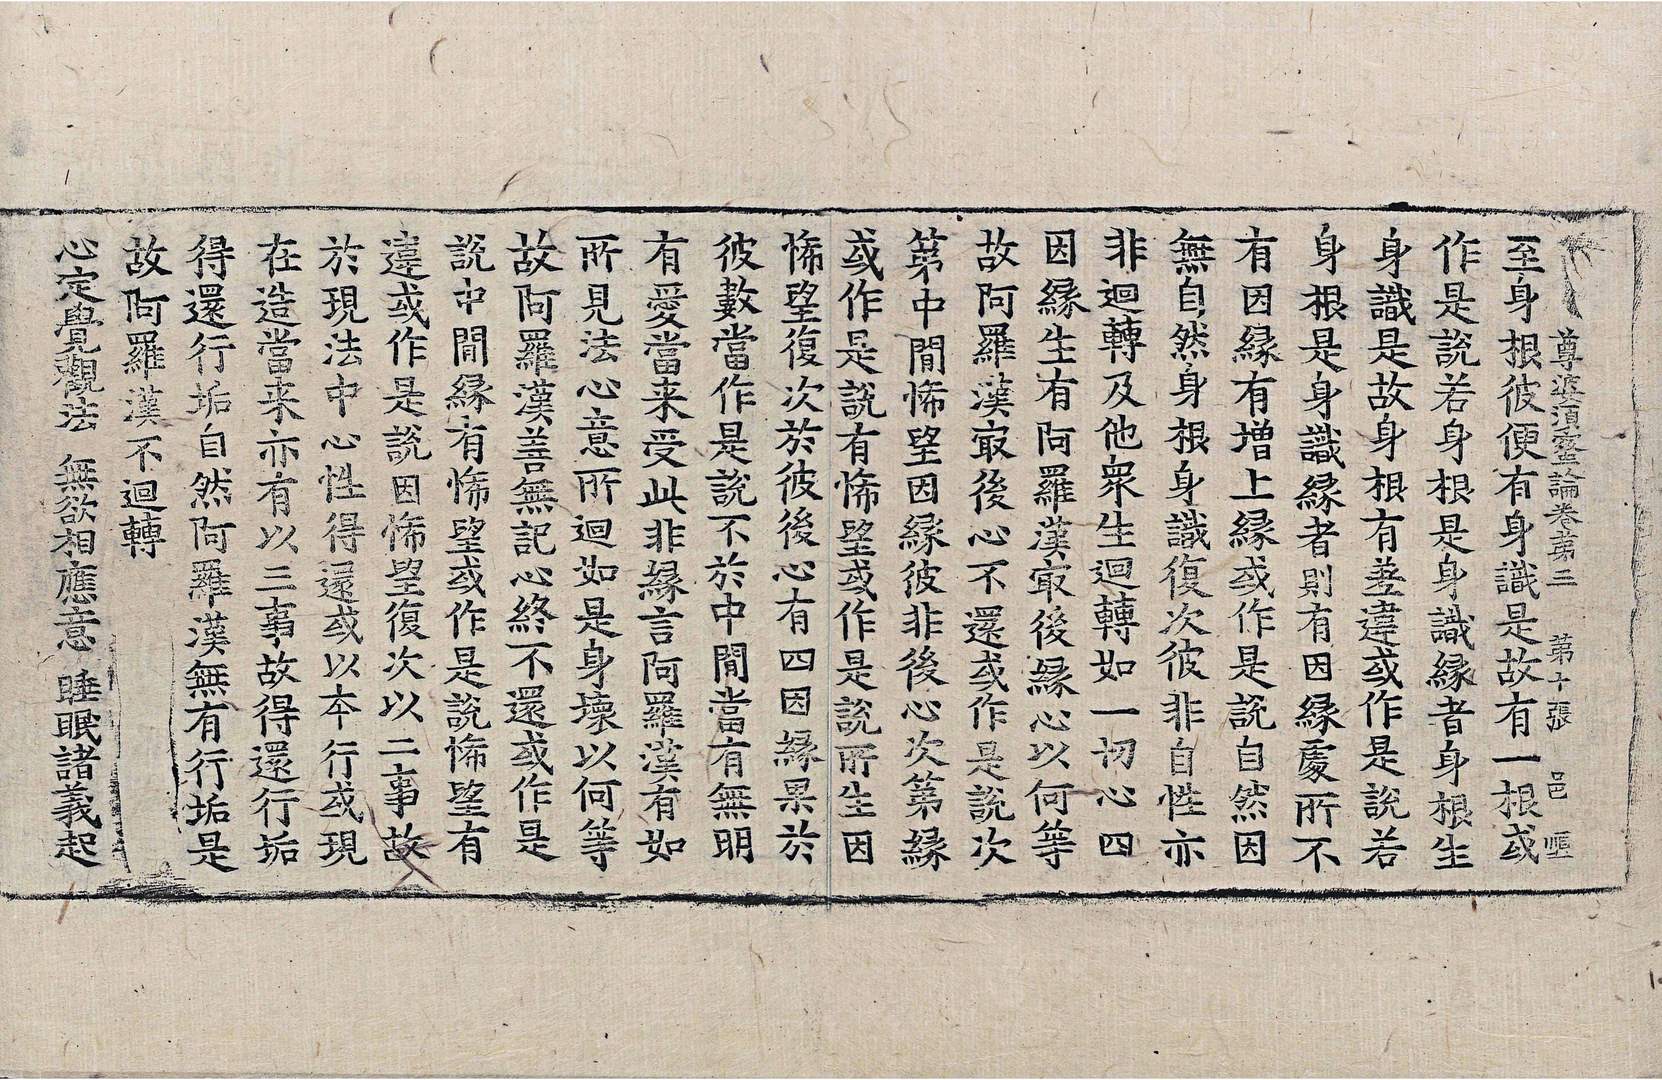 尊婆須蜜論卷第三 第十張 邑
至身根彼便有身識是故有一根或
作是說若身根是身識緣者身根生
身識是故身根有差違或作是說若
身根是身識緣者則有因緣處所不
有因緣有增上緣或作是說自然因
無自然身根身識復次彼非自性亦
非迴轉及他衆生迴轉如一切心四
因緣生有阿羅漢㝡後緣心以何等
故阿羅漢㝡後心不還或作是說次
第中間悕望因緣彼非後心次第緣
或作是說有悕望或作是說所生因
悕望復次於彼後心有四因緣果於
彼數當作是說不於中間當有無明
有愛當来受此非緣言阿羅漢有如
所見法心意所迴如是身壞以何等
故阿羅漢善無記心終不還或作是
說中間緣有悕望或作是說悕望有
違或作是說因悕望復次以二事故
於現法中心性得還或以本行或現
在造當来亦有以三事故得還行垢
得還行垢自然阿羅漢無有行垢是
故阿羅漢不迴轉
心定覺觀法 無欲相應意 睡眠諸義起